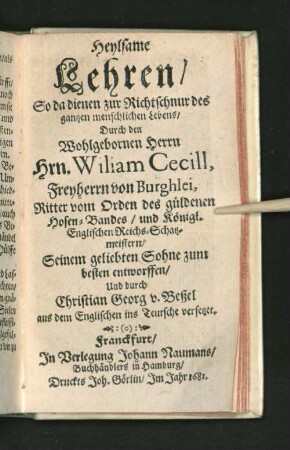 Heylsame
Lehren/
So da dienen zur Richtschnur des
gantzen menschlichen Lebens/
Durch den
Wohlgebornen Herrn
Hrn. Wiliam Cecill,
Freyherrn von Burghlei,
Ritter vom Orden des güldenen
Hosen-Bandes/ und Königl.
Englischen Reichs-Schatz-
meistern/
Seinem geliebten Sohne zum
besten entworffen/
Und durch
Christian Georg v. Beßel
aus dem Englischen ins Teutsche versetzet.
(o)
Franckfurt/
In Verlegung Johann Naumans/
Buchhändlers in Hamburg/
Druckts Joh. Görlin/ Im Jahr 1681.